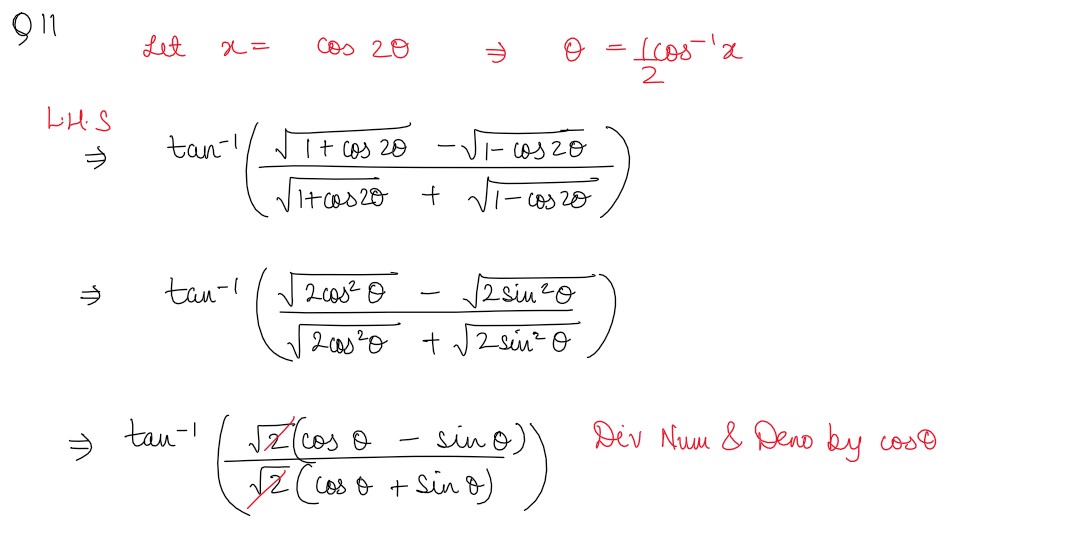 Q 11
Let x = cos 2θ ⇒ θ = 1/2 cos⁻¹x
L.H.S
⇒ tan⁻¹ ( (√(1 + cos 2θ) − √(1 − cos 2θ)) / (√(1 + cos 2θ) + √(1 − cos 2θ)) )
⇒ tan⁻¹ ( (√(2cos² θ) − √(2 sin² θ)) / (√(2cos² θ) + √(2 sin² θ)) )
⇒ tan⁻¹ ( √2 (cos θ − sin θ) / √2 (cos θ + sin θ) ) Div Num & Deno by cosθ